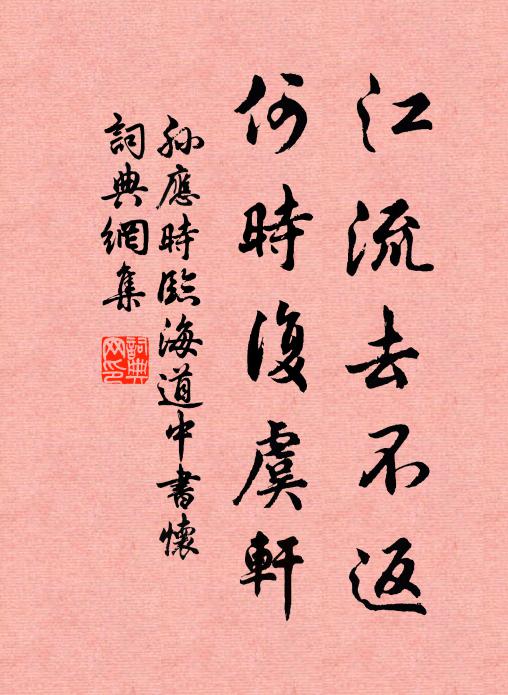 江流去不返
何時復虞軒
孫應時臨海道中書懷
詞典網集
詞典網印